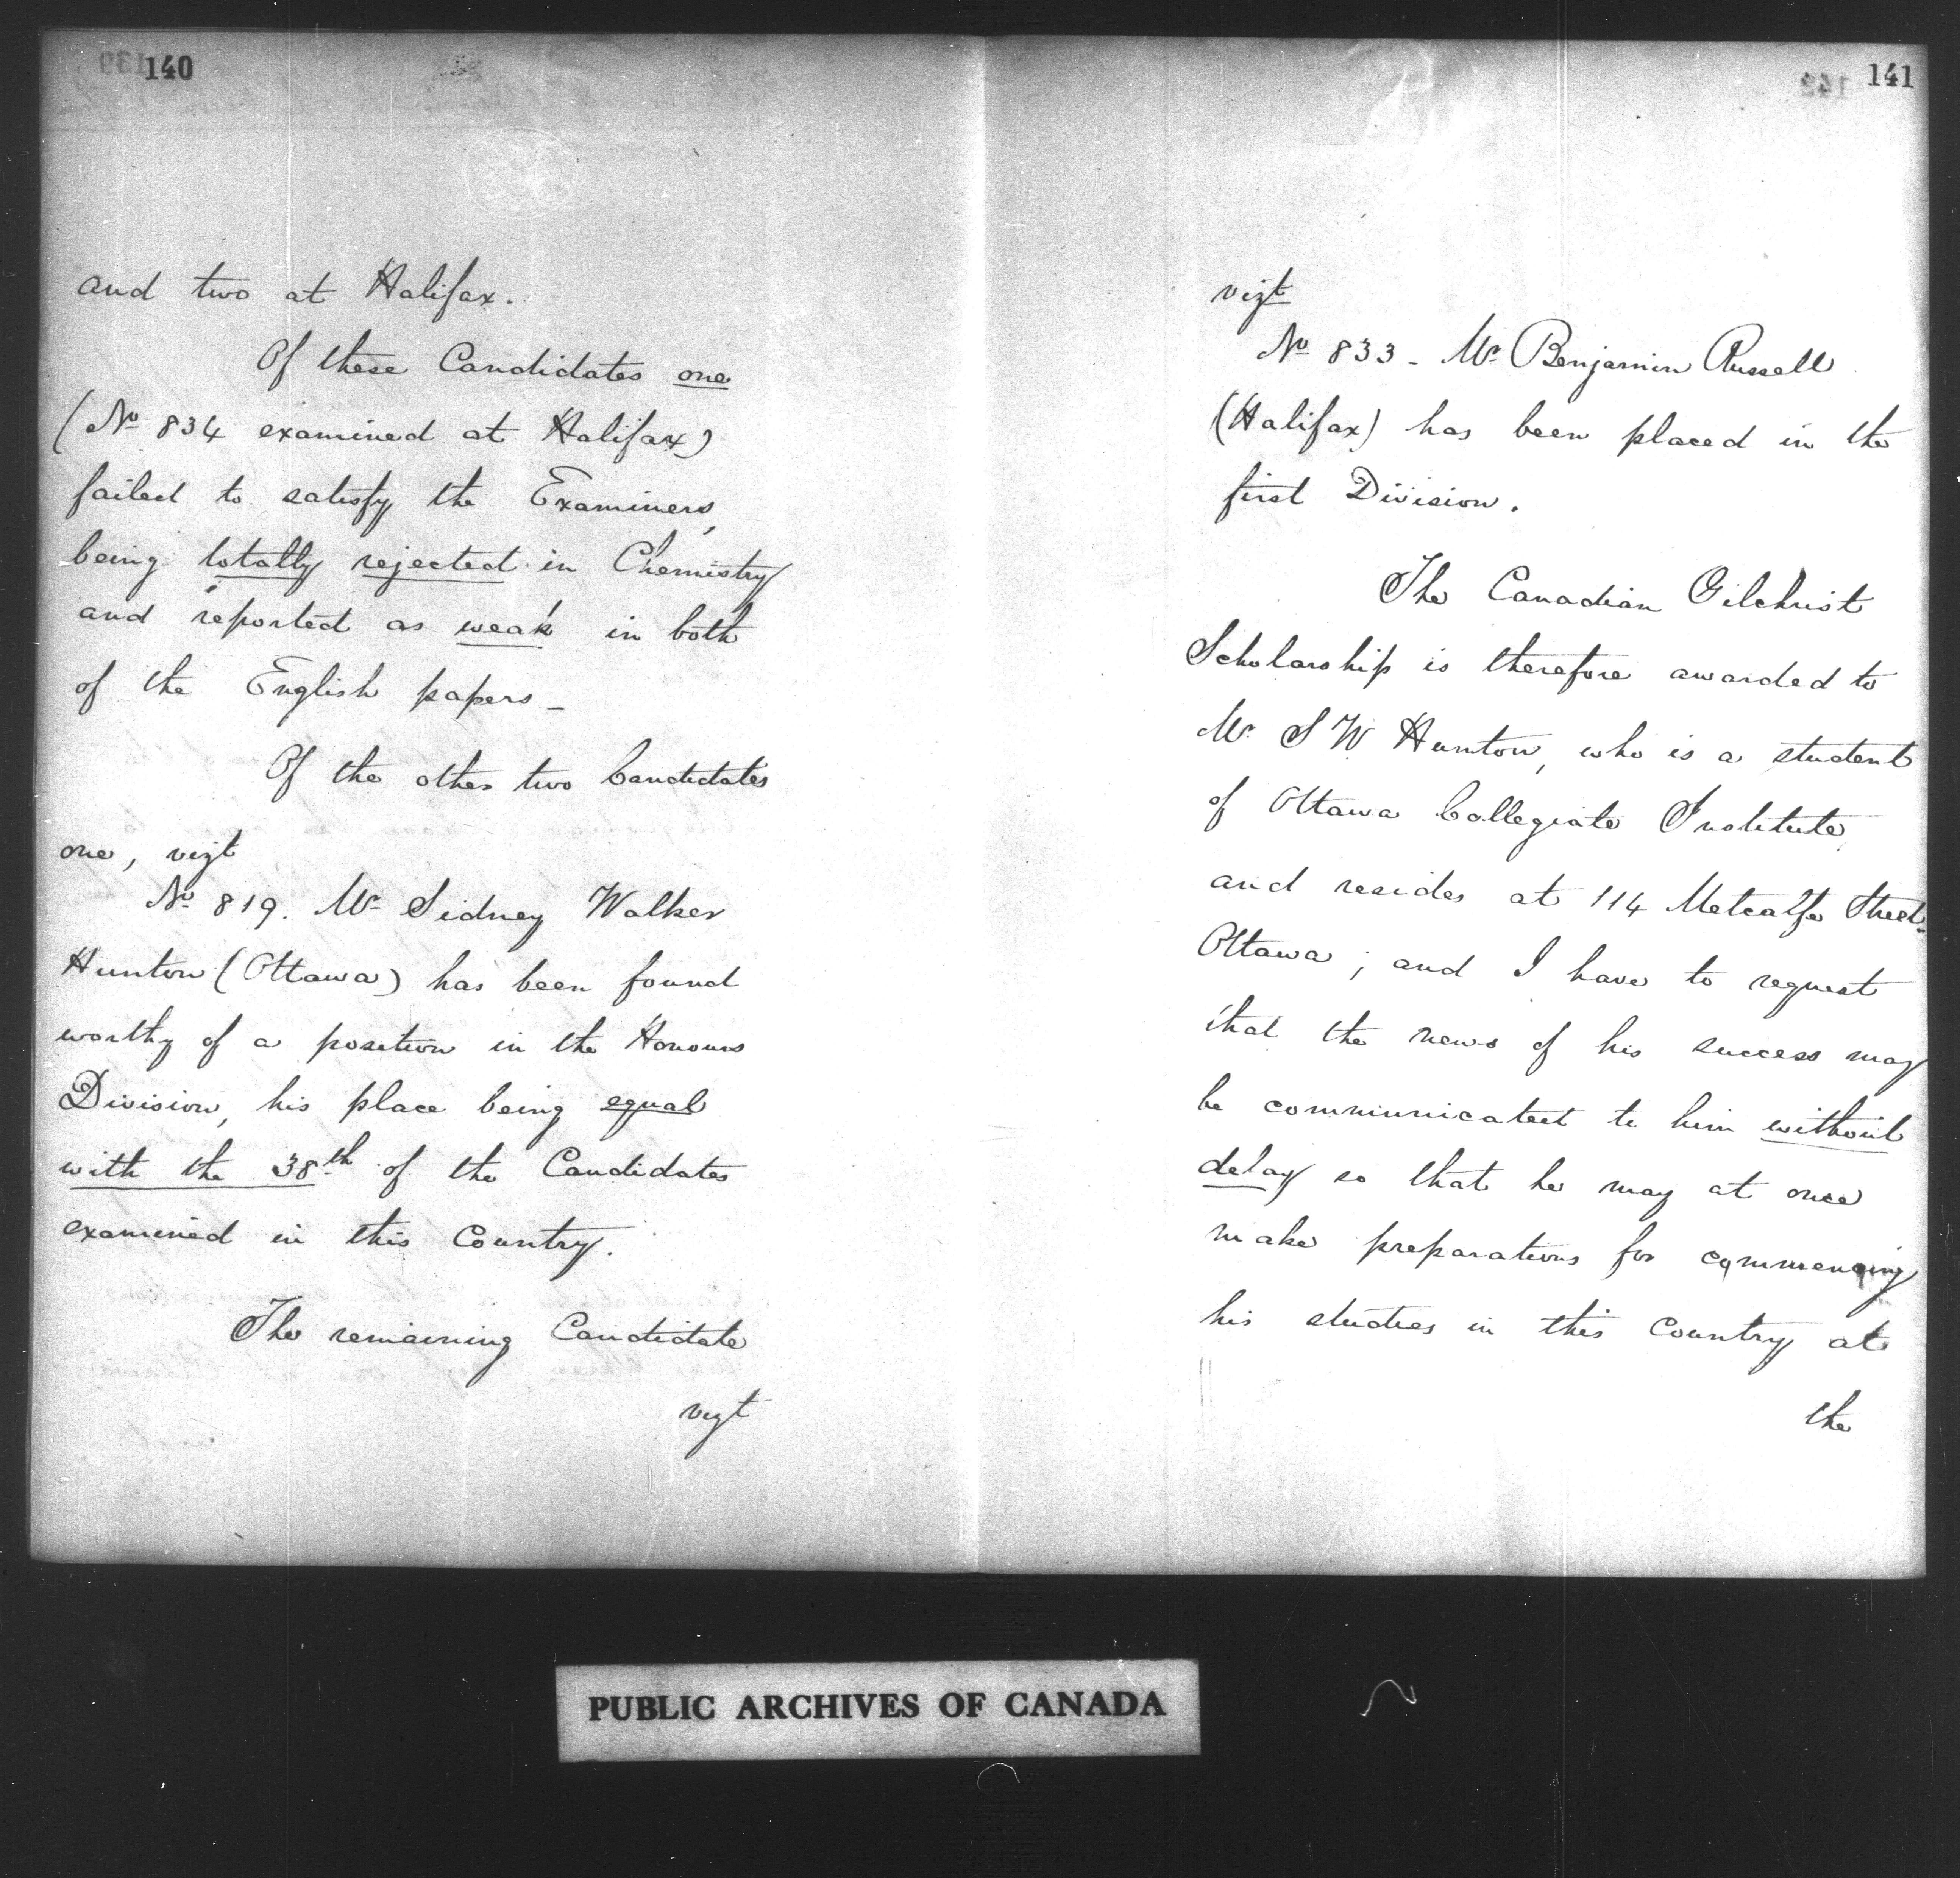 140
and two at Halifax.
Of these Candidates one
(No 834 examined at Halifax)
failed to satisfy the Examiners,
being totally rejected in Chemistry
and reported as weak in both
of the English papers_
Of the other two Candidates
one, vizt
No 819. Mr Sidney Walker
Hunton (Ottawa) has been found
worthy of a position in the Honours
Division, his place being equal
with the 38th of the Candidates
examined in this Country.
The remaining Candidate
vizt
141
vizt
No 833 - Mr Benjamin Russell
(Halifax) has been placed in the
first Division.
The Canadian Gilchrist
Scholarship is therefore awarded to
Mr. S W Hunton, who is a student
of Ottawa Collegiate Institute,
and resides at 114 Metcalfe Street
Ottawa; and I have to request
that the news of his success may
be communicated to him without
delay so that he may at once
make preparations for commencing
his studies in this Country at
the
PUBLIC ARCHIVES OF CANADA